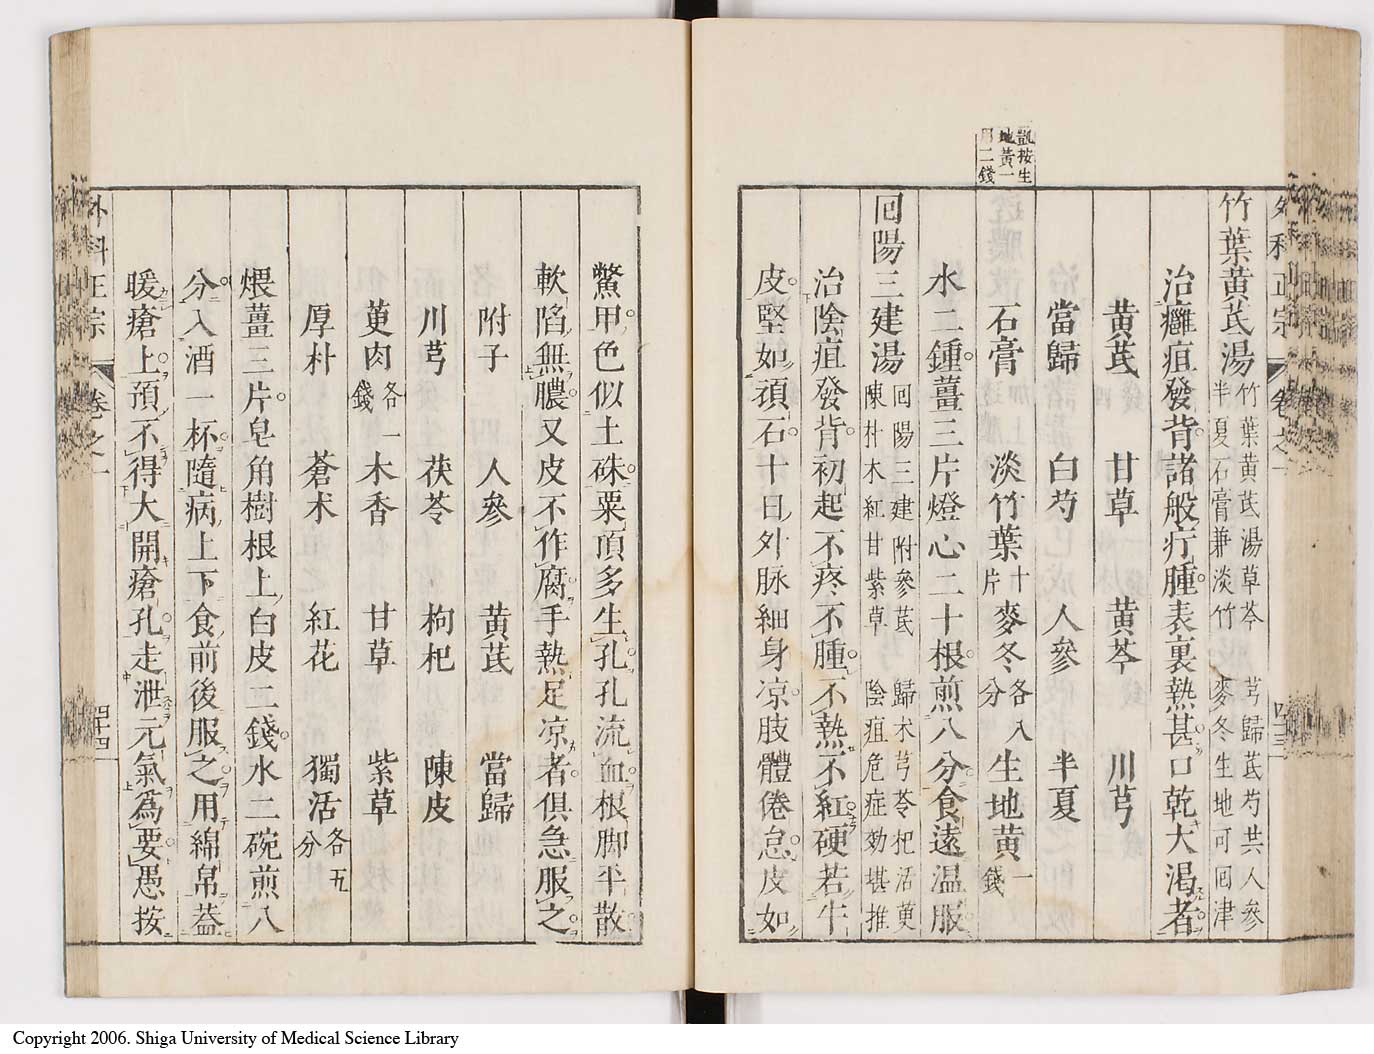 外科正宗 卷之一 四十三
竹葉黄芪湯 竹葉黄芪湯草芩 芎歸芪芍共人參 半夏石膏兼淡竹 麥冬生地可回津
治癰疽發背諸般疔腫表裏熱甚口乾大渴者
黄芪 甘草 黄芩 川芎
當歸 白芍 人參 半夏
凱按生地黄一用二錢
石膏 淡竹葉十片 麥冬各八分 生地黄一錢
水二鍾薑三片燈心二十根煎八分食遠温服
回陽三建湯 回陽三建附參芪 歸朮芎苓杞活萸 陳朴木紅甘紫草 陰疽危症効堪推
治陰疽發背初起不疼不腫不熱不紅硬若牛
皮堅如頑石十日外脉細身凉肢體倦怠皮如
鱉甲色似土硃粟頂多生孔孔流血根脚平散
軟陷無膿又皮不作腐手熱足凉者俱急服之
附子 人參 黄芪 當歸
川芎 茯苓 枸杞 陳皮
萸肉各一錢 木香 甘草 紫草
厚朴 蒼朮 紅花 獨活各五分
煨薑三片皂角樹根上白皮二錢水二碗煎八
分入酒一杯隨病上下食前後服之用綿帛葢
暖瘡上預不得大開瘡孔走泄元氣爲要愚按
外科正宗 卷之一 四十四
Copyright 2006. Shiga University of Medical Science Library